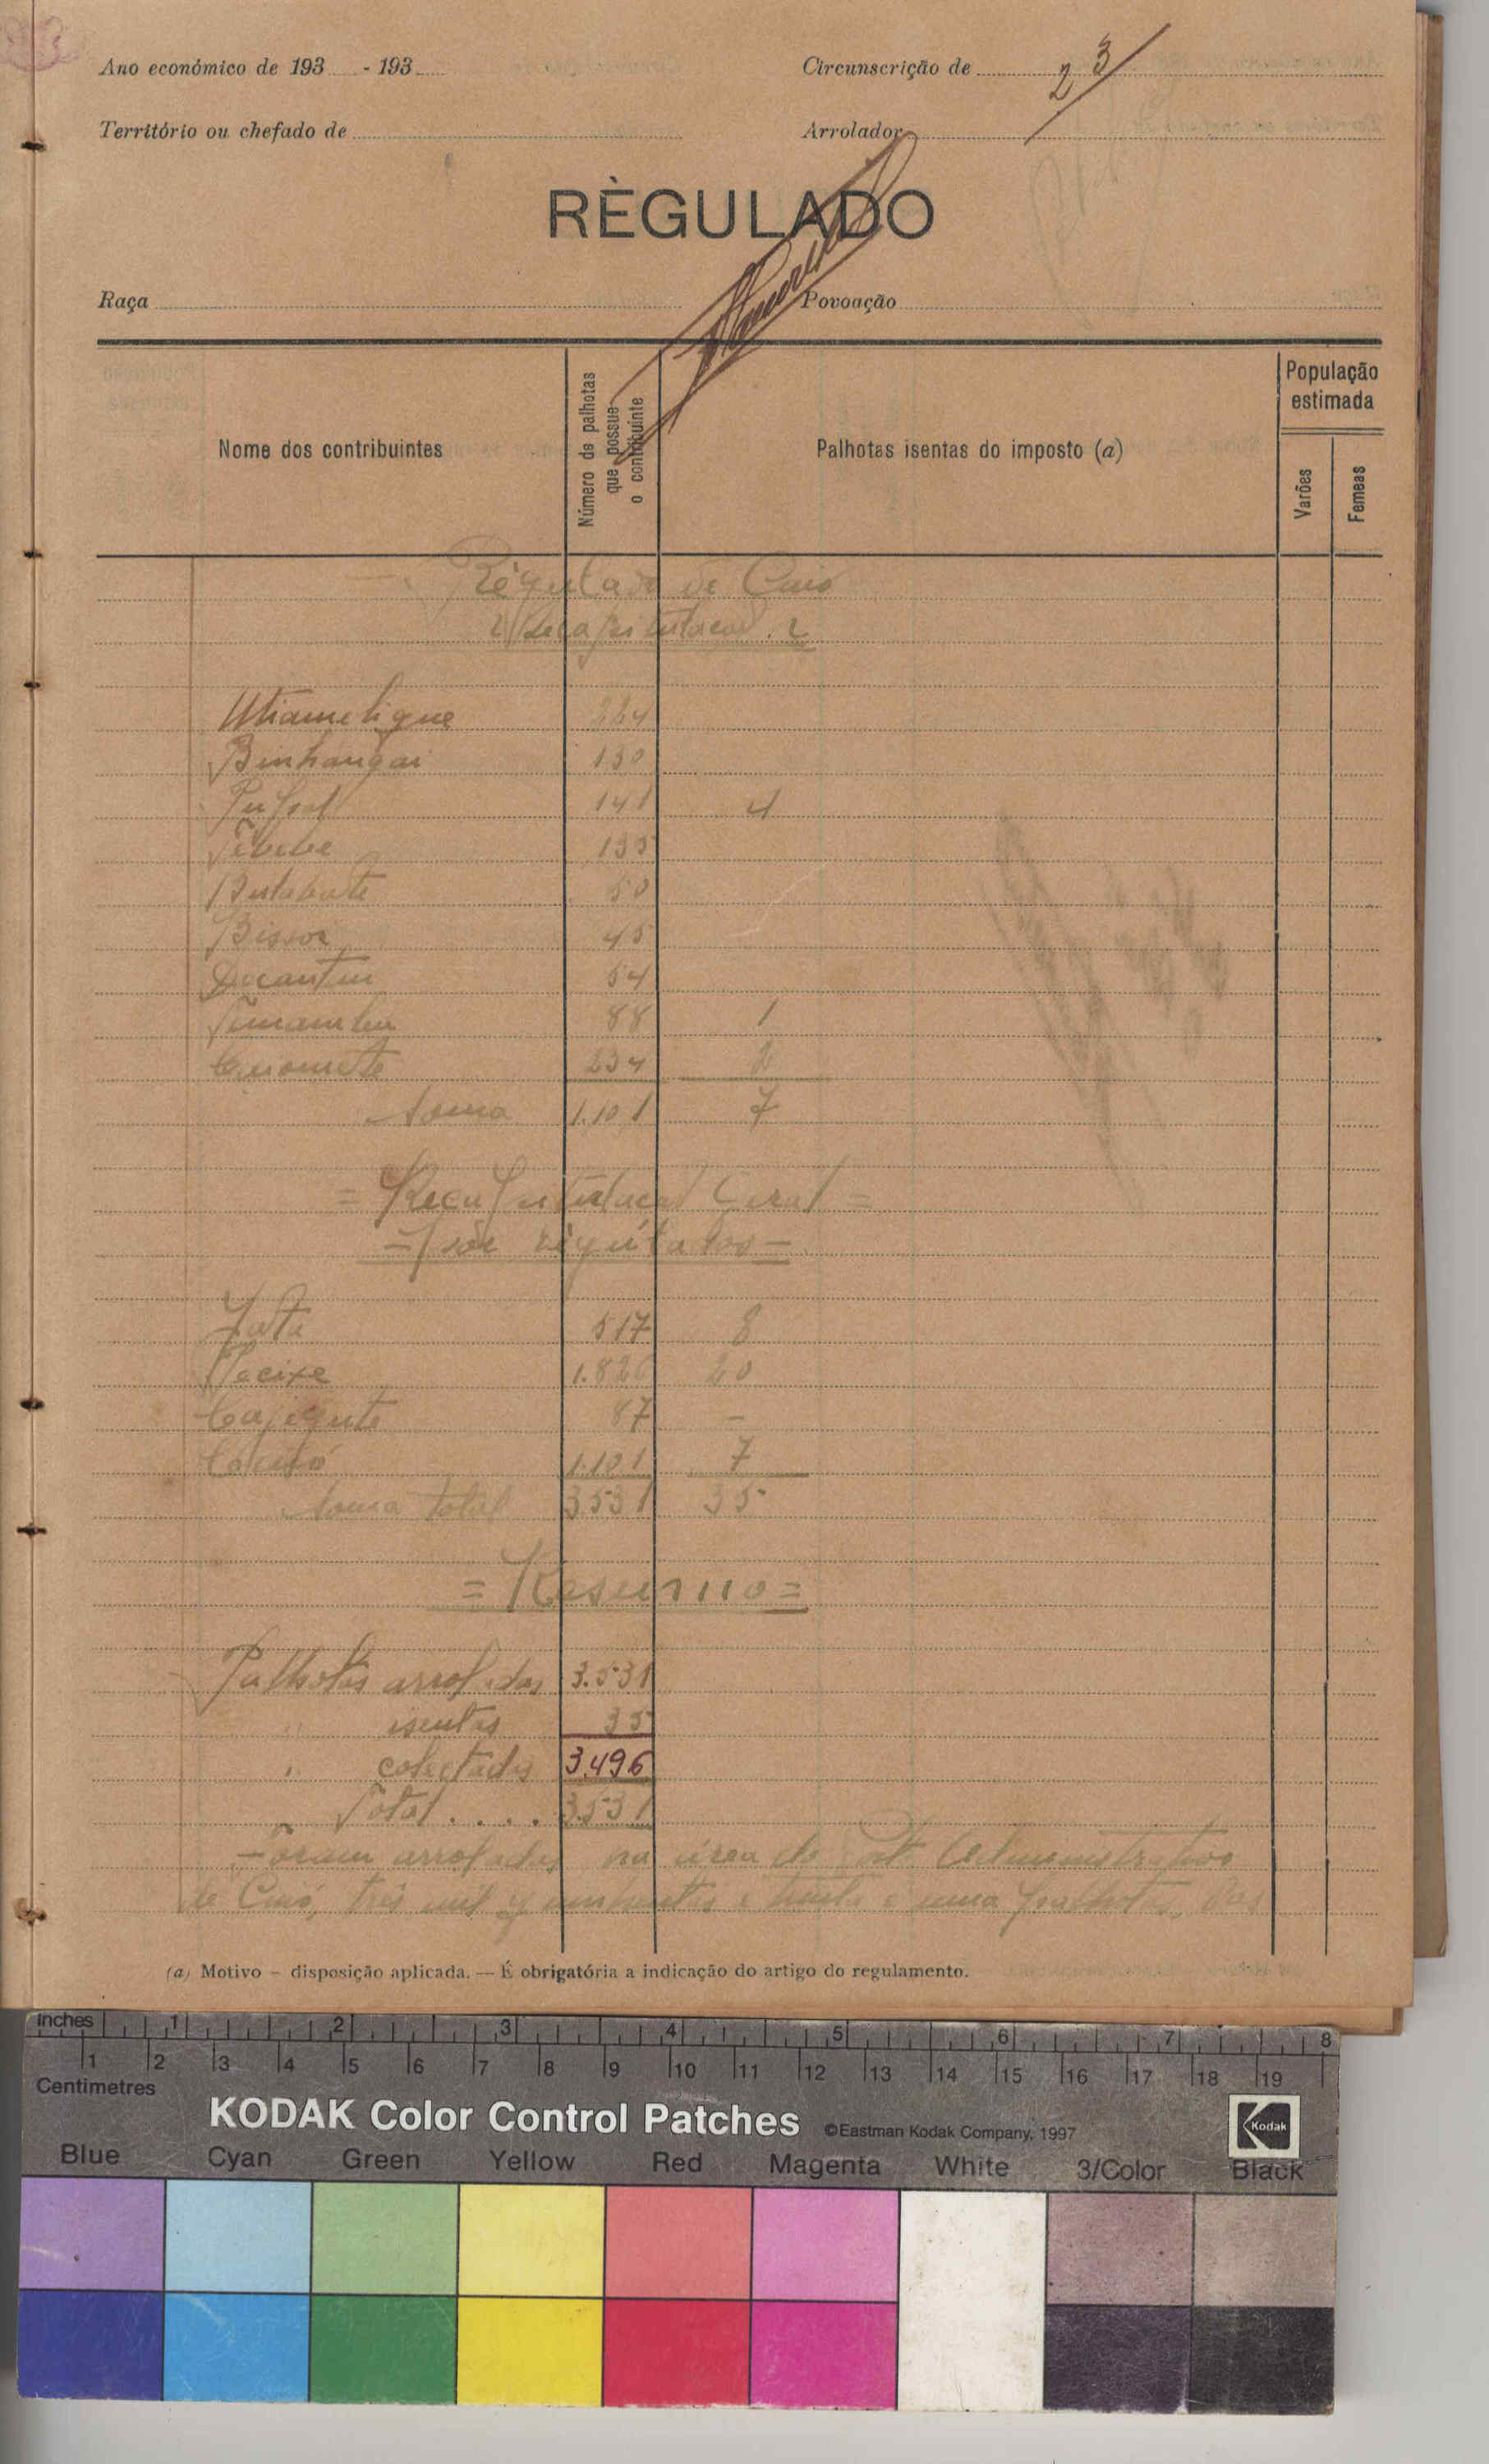 Ano económico de 193 - 193
Circunscrição de
23
Território ou chefado de
Arrolador
RÈGULADO
Raça
Povoação
Nome dos contribuintes
Número de palhotas que possue o contribuinte
Palhotas isentas do imposto (a)
População estimada
Varões
Femeas
Régulado de Caió
Recapitulacao
Utiamelique 264
Binhangai 130
141 4
135
50
Bissor 45
54
88 1
234 2
Soma 1.101 7
= Recapitulacao Geral =
- Por régulados -
Jata 517 8
Pecixe 1.826 20
Cajegute 87 -
Caió 1.101 7
Soma total 3531 35
= Resumo =
Palhotas arroladas 3.531
" isentas 35
" colectadas 3.496
Total .... 3.531
- Foram arroladas na área do Administrativo
de Caió, três mil quinhentas e trinta e uma palhotas, das
(a) Motivo – disposição aplicada. — É obrigatória a indicação do artigo do regulamento.
inches 1 2 3 4 5 6 7 8
1 2 3 4 5 6 7 8 9 10 11 12 13 14 15 16 17 18 19
Centimetres
KODAK Color Control Patches ©Eastman Kodak Company, 1997 Kodak
Blue Cyan Green Yellow Red Magenta White 3/Color Black